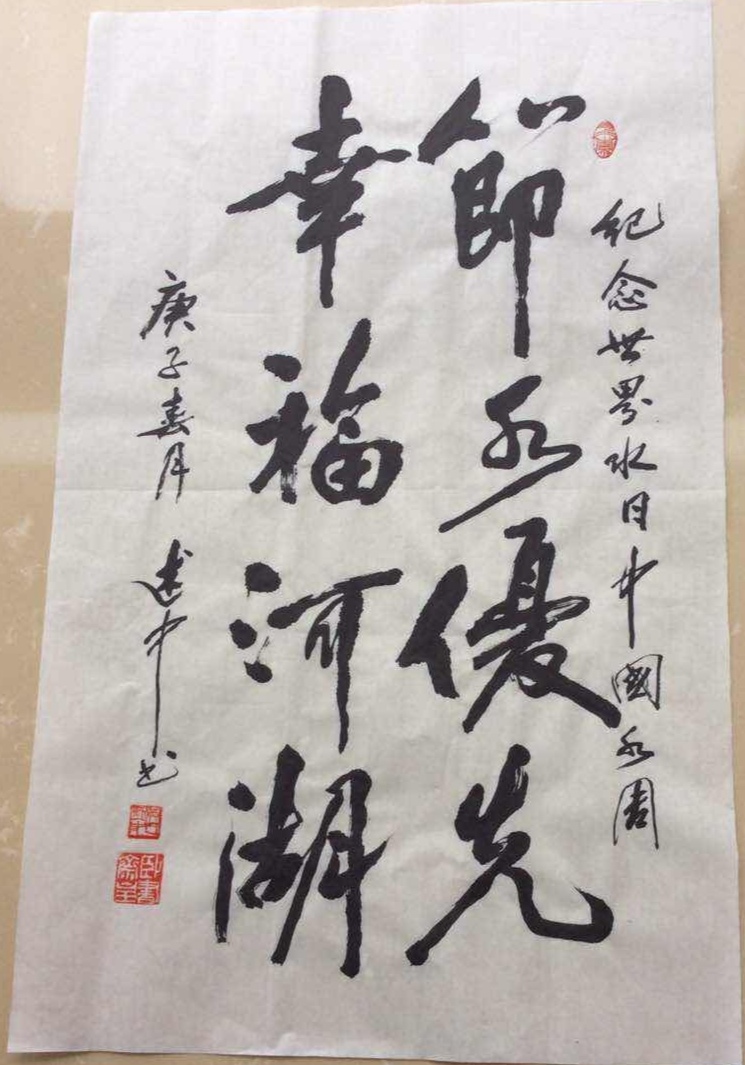 紀念世界水日中國水周
節水優先
幸福河湖
庚子春月 建中书